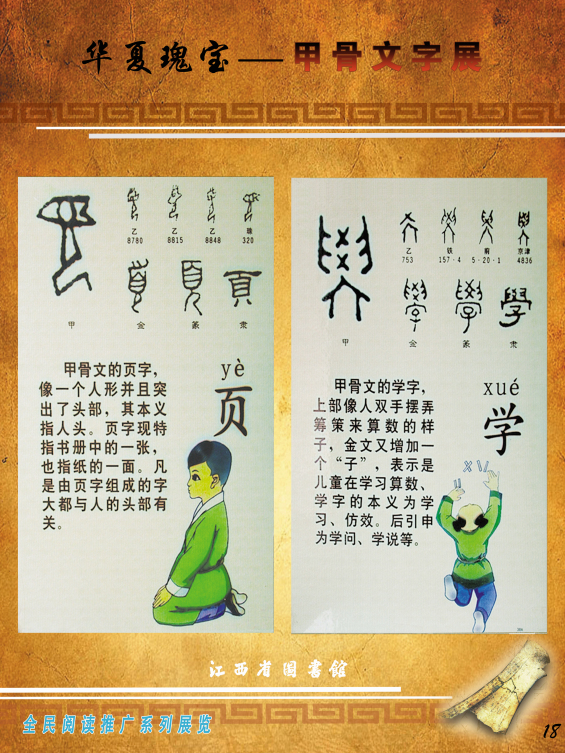 华夏瑰宝——甲骨文字展
乙 乙 乙 珠
8780 8815 8848 320
甲 金 篆 隶
yè
页
甲骨文的页字，
像一个人形并且突
出了头部，其本义
指人头。页字现特
指书册中的一张，
也指纸的一面。凡
是由页字组成的字
大都与人的头部有
关。
乙 铁 前 京津
753 157·4 5·20·1 4836
甲 金 篆 隶
xué
学
甲骨文的学字，
上部像人双手摆弄
筹策来算数的样
子，金文又增加一
个“子”，表示是
儿童在学习算数、
学字的本义为学
习、仿效。后引申
为学问、学说等。
江西省图書館
全民阅读推广系列展览
18